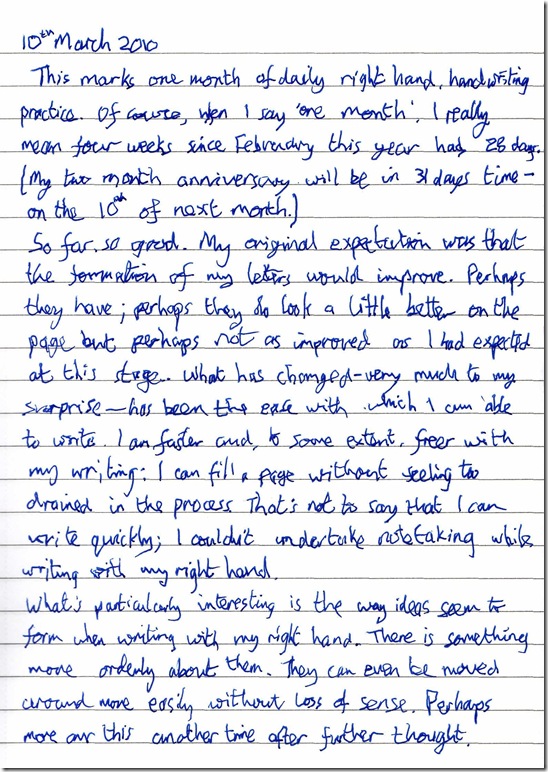 10th March 2010
This marks one month of daily right hand, handwriting
practice. Of course, when I say 'one month', I really
mean four weeks since February this year had 28 days.
(My two month anniversary will be in 31 days time -
on the 10th of next month.)
So far so good. My original expectation was that
the formation of my letters would improve. Perhaps
they have; perhaps they do look a little better on the
page but perhaps not as improved as I had expected
at this stage. What has changed - very much to my
surprise - has been the ease with which I am able
to write. I am faster and, to some extent, freer with
my writing: I can fill a page without feeling too
drained in the process That's not to say that I can
write quickly; I couldn't undertake notetaking while
writing with my right hand.
What's particularly interesting is the way ideas seem to
form when writing with my right hand. There is something
more orderly about them. They can even be moved
around more easily without loss of sense. Perhaps
more on this another time after further thought.